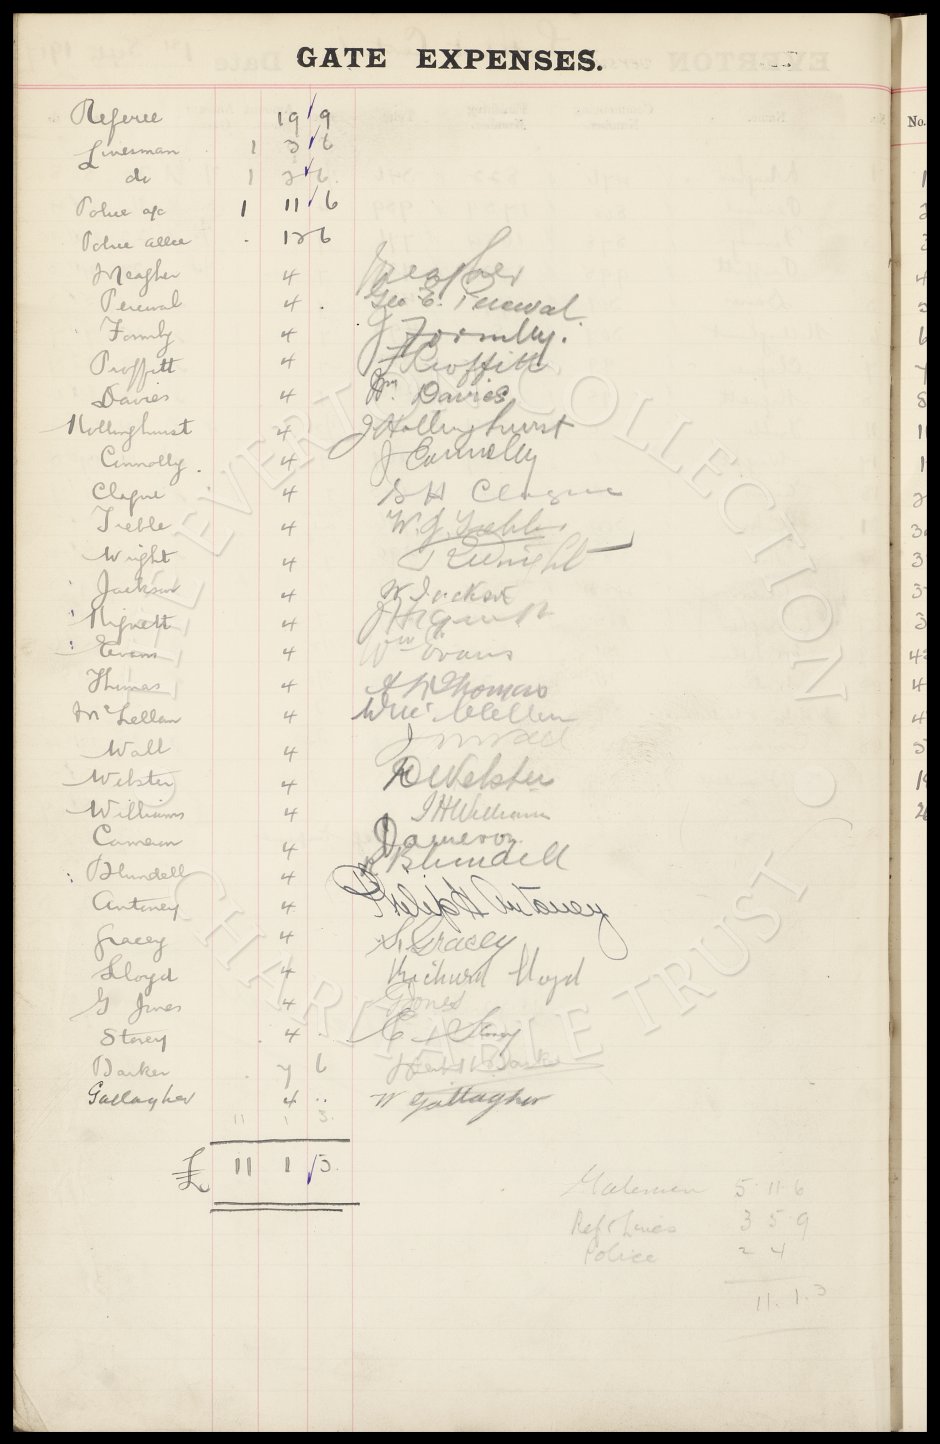 GATE EXPENSES.
Referee 19 9
Linesman 1 3 6
do 1 2 6
Police a/c 1 11 6
Police allce 12 6
Meagher 4 Meagher
Percival 4 Geo E. Percival
Formby 4 J Formby.
Proffitt 4 J Proffitt
Davies 4 Wm. Davies
Hollinghurst 4 J Hollinghurst
Connolly 4 J Connolly
Clague 4 G H Clague
Treble 4 W. J. Treble
Wright 4 T R Wright
Jackson 4 W Jackson
Rignett 4
Evans 4 Wm Evans
Thomas 4 A W Thomas
McLellan 4 Wm McClellan
Wall 4 J M Wall
Webster 4 D Webster
Williams 4 J H Williams
Cameron 4 D Cameron
Blundell 4 R Blundell
Antoney 4 Philip H Antoney
Gracey 4 S. Gracey
Lloyd 4 Richard Lloyd
G Jones 4 G Jones
Storey 4 Storey
Barker 7 6 Barker
Gallagher 4 W Gallagher
11 1 3
£ 11 1 3
Gatemen 5 11 6
Ref & Lines 3 5 9
Police 2 4
11. 1. 3
No.
EVERTON COLLECTION
CHARITABLE TRUST